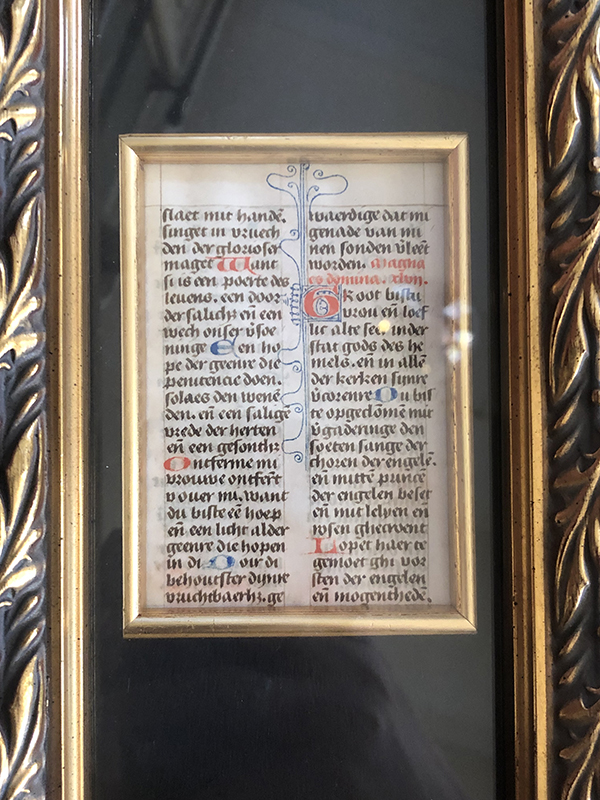 slaet mit handē.
singet in vruech
den der glorioser
maget Want
si is een poerte des
leuens. een door
der salichz en̄ een
wech onser v̄soe
ninge Een ho
pe der geenre die
penitencie doen.
solaes den wenē
den. en̄ een salige
vrede der herten
en̄ een gesonthz
Ontferme mi
vrouwe ontferm̄
v ouer mi. want
du biste eē hoep
en̄ een licht alder
geenre die hopen
in di Ouir di
behoutster dynre
vruchtbaerhz. ge
waerdige dat mi
genade van mi
nen sonden v̄leēt
worden. Magna
es domina. xlvij.
Groot bistu
vrou en̄ loef
lic alte seer in der
stat gods des he
mels. en̄ in allē
der kerken synre
v̄corenre Du bis
te opgeclōmē mit
v̄gaderinge den
soeten sange der
choren der engelē.
en̄ mittē prince
der engelen beset
en̄ mit lelyen en̄
rosen ghecroent
Lopet haer te
gemoet ghi vor
sten der engelen
en̄ mogenthede.